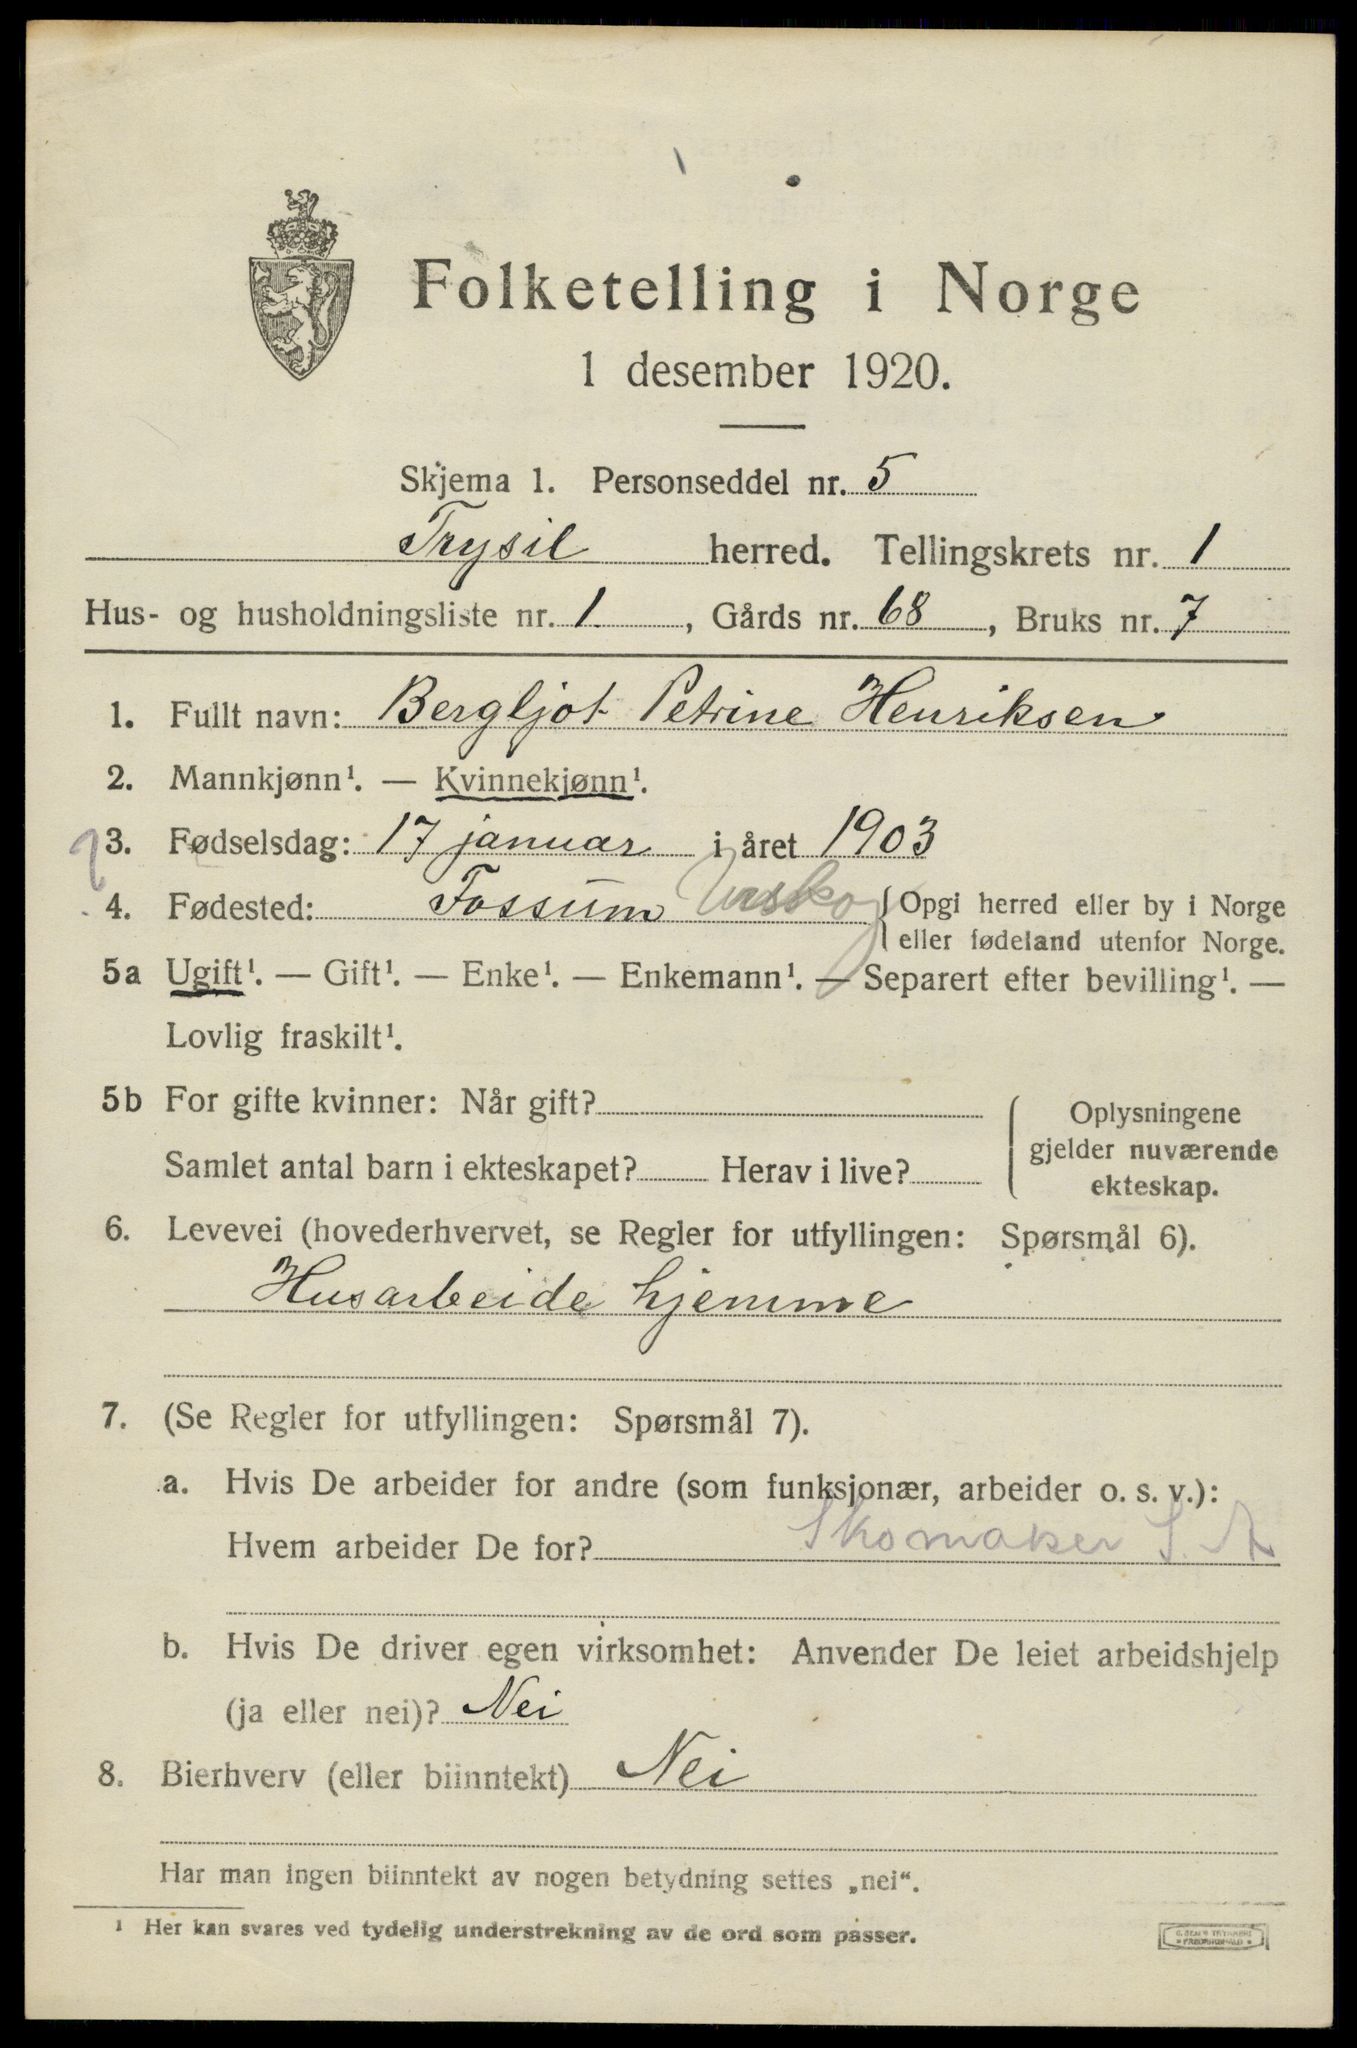 Folketelling i Norge
1 desember 1920.
Skjema 1. Personseddel nr. 5
Trysil herred. Tellingskrets nr. 1
Hus- og husholdningsliste nr. 1., Gårds nr. 68, Bruks nr. 7
1. Fullt navn: Bergljot Petrine Henriksen
2. Mannkjønn¹. — Kvinnekjønn¹.
3. Fødselsdag: 17 januar i året 1903
4. Fødested: Fossum Urskog { Opgi herred eller by i Norge
eller fødeland utenfor Norge.
5a Ugift¹. — Gift¹. — Enke¹. — Enkemann¹. — Separert efter bevilling¹. —
Lovlig fraskilt¹.
5b For gifte kvinner: Når gift?
Samlet antal barn i ekteskapet? Herav i live?
Oplysningene
gjelder nuværende
ekteskap.
6. Levevei (hovederhvervet, se Regler for utfyllingen: Spørsmål 6).
Husarbeide hjemme
7. (Se Regler for utfyllingen: Spørsmål 7).
a. Hvis De arbeider for andre (som funksjonær, arbeider o. s. v.):
Hvem arbeider De for? Skomaker S. A
b. Hvis De driver egen virksomhet: Anvender De leiet arbeidshjelp
(ja eller nei)? Nei
8. Bierhverv (eller biinntekt) Nei
Har man ingen biinntekt av nogen betydning settes „nei“.
¹ Her kan svares ved tydelig understrekning av de ord som passer.